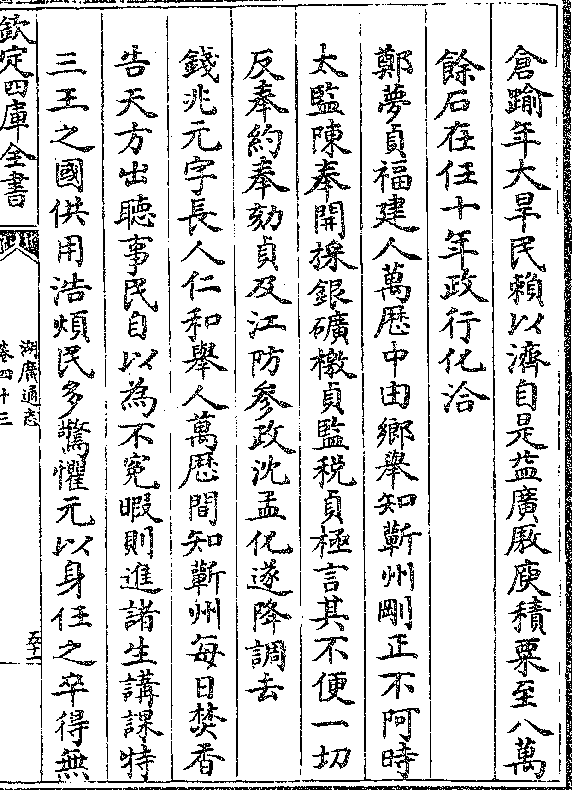 倉踰年大旱民賴以濟自是益廣厫庾積粟至八萬
餘石在任十年政行化洽
鄭夢貞福建人萬厯中由鄉舉知蘄州剛正不阿時
太監陳奉開採銀礦檄貞監税貞極言其不便一切
反奉約奉劾貞及江防參政沈孟化遂降調去
錢兆元字長人仁和舉人萬厯間知蘄州每日焚香
告天方出聽事民自以為不寃暇則進諸生講課特
三王之國供用浩煩民多驚懼元以身任之卒得無
欽定四庫全書
湖廣通志
卷四十三